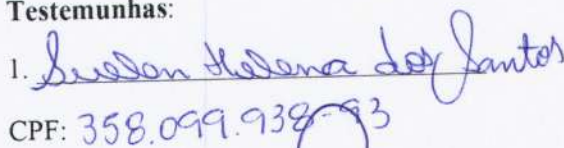 Testemunhas:
1. Suelen Helena dos Santos
CPF: 358.099.938-93